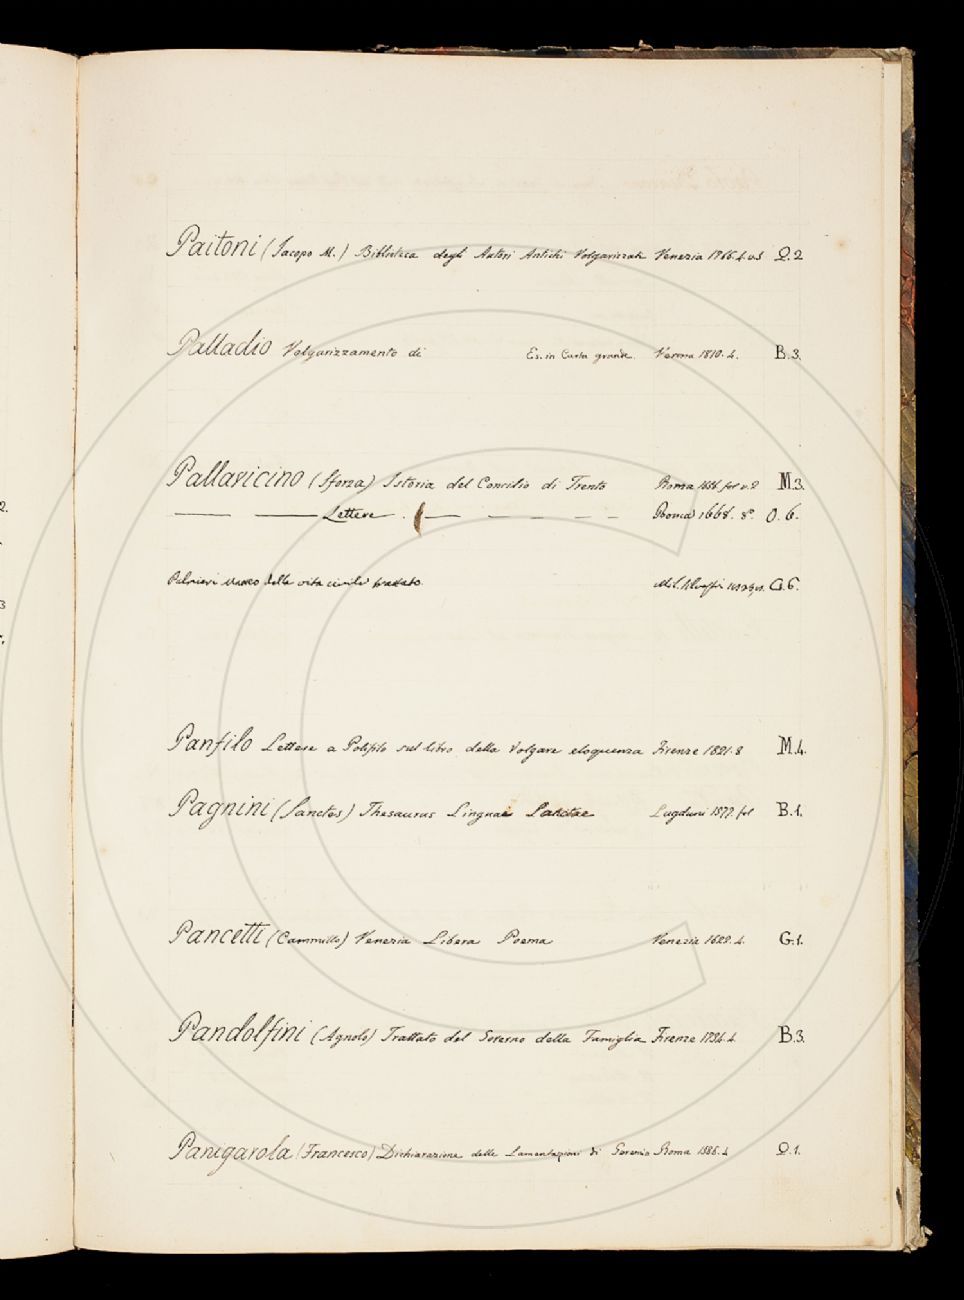 Paitoni (Jacopo M.) Biblioteca degli Autori Antichi Volgarizzati Venezia 1766. 4. v. 5 Q. 2
Palladio Volgarizzamento di Es. in Carta grande. Verona 1810. 4. B. 3.
Pallavicino (Sforza) Istoria del Concilio di Trento Roma fol. v. 2 M. 3.
Lettere Roma 1668. 8°. O. 6.
Palmieri Matteo della vita civile trattato. G. 6.
Panfilo Lettere a Polifilo sul libro della Volgare eloquenza Firenze 1821. 8 M. 4.
Pagnini (Sanctes) Thesaurus Linguae Sanctae Lugduni fol B. 1.
Pancetti (Cammillo) Venezia Libera Poema Venezia 1622. 4. G. 1.
Pandolfini (Agnolo) Trattato del Governo della Famiglia Firenze 1734. 4. B. 3.
Panigarola (Francesco) Dichiarazione delle Lamentazioni di Geremia Roma 1586. 4 Q. 1.